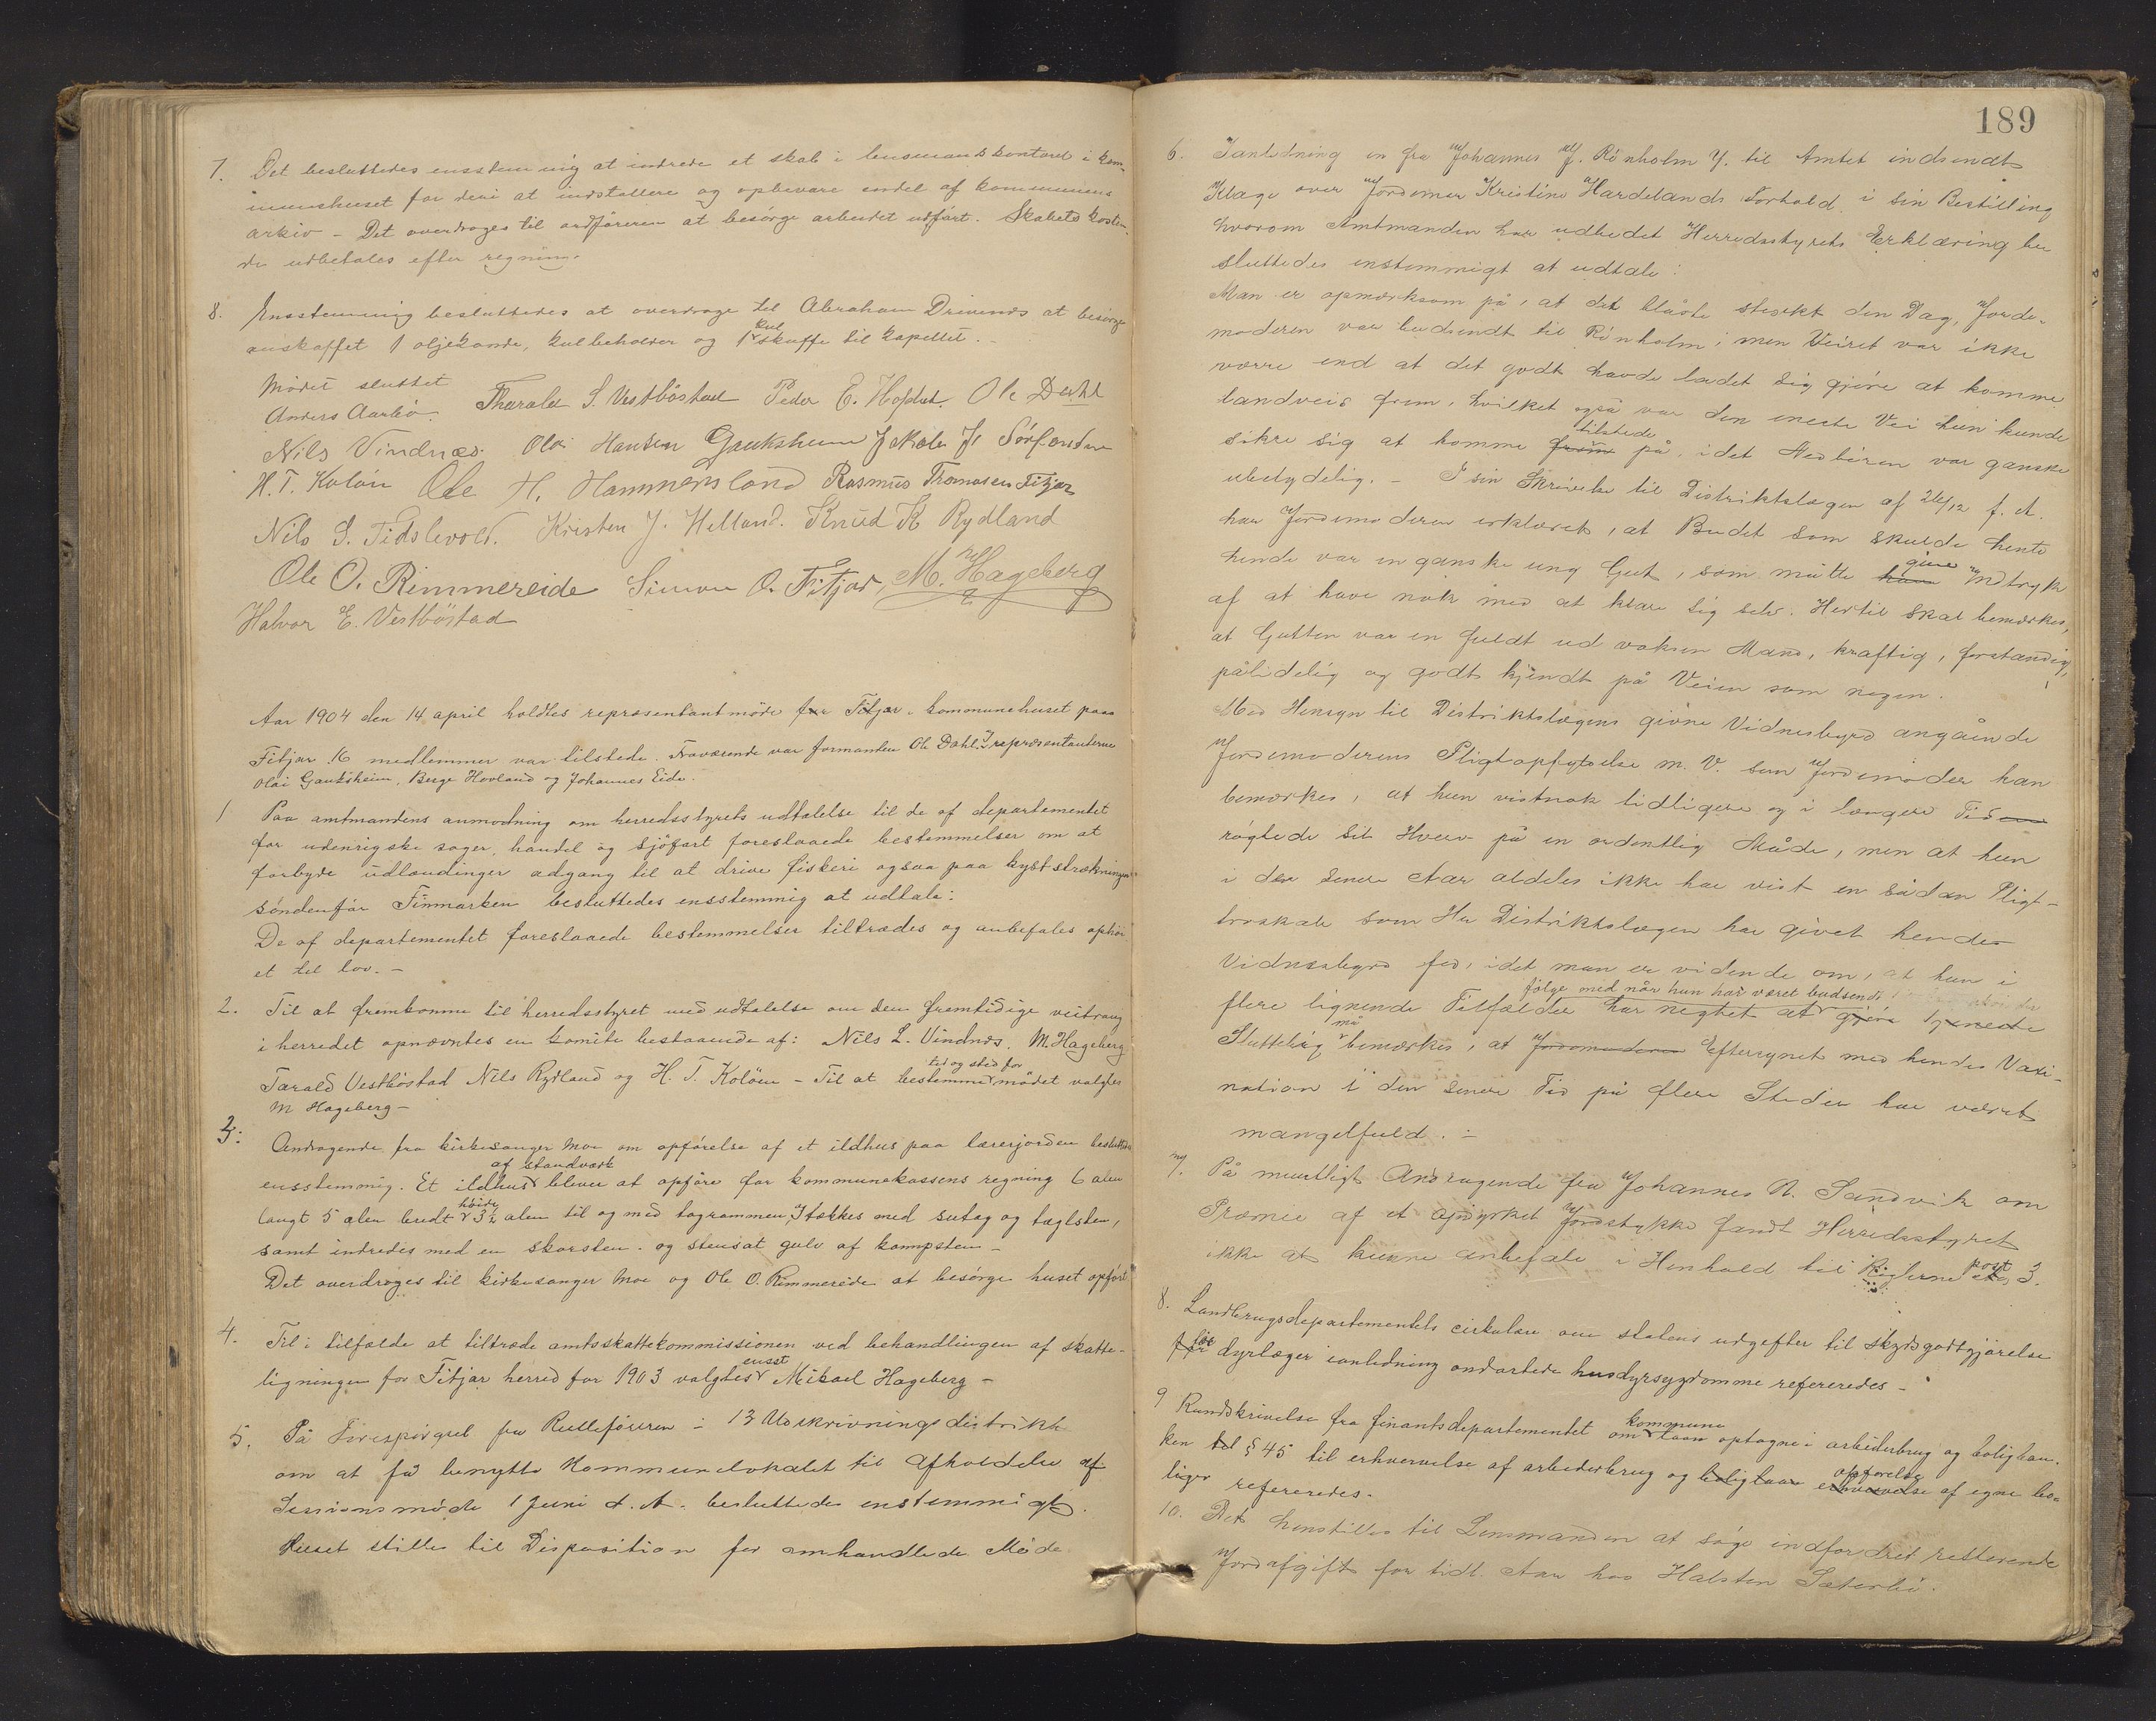 7. Det besluttedes ensstemmig at indrede et skab i lensmandskontoret i kom-
munehuset for deri at indstallere og opbevare endel af kommunens
arkiv – Det overdroges til ordføreren at besørge arbeidet udført. Skabets kosten-
de udbetales efter regning.
8. Ensstemmig besluttedes at overdrage til Abraham Drivenes at besørge
anskaffet 1 oljekande, kulbeholder og 1 kul skuffe til kapellet. –
Mødet sluttet
Anders Aarbø Tharald S. Vestbøstad Peder E. Hoplid. Ole Dahl
Nils Vindnæs. Olai Hansen Gauksheim Jakob J. Sørfonden
H. T. Koløen Ole H. Hammersland Rasmus Tromasen Fitjar
Nils S. Tislevold. Kristen J. Helland. Knud K Rydland
Ole O. Rimmereide Simon O. Fitjar, M. Hageberg
Halvor E. Vestbøstad
Aar 1904 den 14 april holdtes repræsentantmøde for Fitjar i kommunehuset paa
Fitjar. 16 medlemmer var tilstede. Fraværende var formanden Ole Dahl, repræsentanterne
Olai Gauksheim, Berge Hovland og Johannes Eide.
1 Paa amtmandens anmodning om herredsstyrets udtalelse til de af departementet
for udenrigske sager, handel og sjøfart foreslaaede bestemmelser om at
forbyde udlændinger adgang til at drive fiskeri ogsaa paa kyststrækningen
søndenfor Finmarken besluttedes ensstemmig at udtale:
De af departementet foreslaaede bestemmelser tiltrædes og anbefales ophøi-
et til lov. –
2. Til at fremkomme til herredsstyret med udtalelse om den fremtidige veitrang
i herredet opnævntes en komite bestaaende af: Nils L. Vindnes, M. Hageberg
Tarald Vestbøstad Nils Rydland og H. T. Koløen – Til at bestemme tid og sted for mødet valgtes
M Hageberg –
3: Andragende fra kirkesanger Moe om opførelse af et ildhus paa lærerjorden besluttedes
ensstemmig. Et ildhus af standværk bliver at opføre for kommunekassens regning 6 alen
langt 5 alen bredt høide 3½ alen til og med tagrammen, tækkes med sutag og taglsten,
samt indredes med en skorsten. og stensat gulv af kampsten –
Det overdroges til kirkesanger Moe og Ole O. Rimmereide at besørge huset opført
4. Til i tilfælde at tiltræde amtsskattekommissionen ved behandlingen af skatte-
ligningen for Fitjar herred for 1903 valgtes ensst Mikael Hageberg –
5. På Forespørgsel fra Rulleføreren i 13 Udskrivningsdistrikt
om at få benytte Kommunelokalet til Afholdelse af
Sessionsmøde 1 Juni d. A. besluttedes enstemmigt.
Huset stilles til Disposition for omhandlede Møde
189
6. I anledning en fra Johannes J. Rönholm Y. til Amtet indsendt
Klage over Jordemor Kristine Hardelands Forhold i sin Bestilling
hvorom Amtmanden har udbedet Herredsstyrets Erklæring be
sluttedes enstemmigt at udtale:
Man er opmærksom på, at det blåste stærkt den Dag, Jorde-
moderen var budsendt til Rönholm, men Veiret var ikke
værre end at det godt havde ladet sig gjöre at komme
landveis frem, hvilket også var den eneste Vei hun kunde
sikre sig at komme frem tilstede på, idet Nedbören var ganske
ubetydelig. – I sin Skrivelse til Distriktslægen af 26/12 f. A.
har Jordemoderen erklæret, at Budet som skulde hente
hende var en ganske ung Gut, som måtte have give Indtryk
af at have nok med at klare sig selv. Hertil skal bemærkes,
at Gutten var en fuldt ud voksen Mand, kraftig, forstandig,
pålidelig og godt kjendt på Veien som nogen.
Med Hensyn til Distriktslægens givne Vidnesbyrd angående
Jordemoderens Pligtopfyldelse m. V. som Jordemoder kan
bemærkes, at hun vistnok tidligere og i længere Tid
røgtede sit Hverv på en ordentlig Måde, men at hun
i den senere Aar aldeles ikke har vist en sådan Pligt-
troskab som Hr Distriktslægen har givet hende
Vidnesbyrd for, idet man er vidende om, at hun i
flere lignende Tilfælder har negtet at følge med når hun har været budsendt gjöre tjeneste
Sluttelig må bemærkes, at Jordemoderen Eftersynet med hendes Vaxi-
nation i den senere Tid på flere Steder har været
mangelfuld. –
7. På muntligt Andragende fra Johannes N. Sandvik om
Præmie af et opdyrket Jordstykke fandt Herredsstyret
ikke at kunne anbefale i Henhold til Reglerne post 3.
8. Landbrugsdepartementets cirkulære om statens udgifter til skydsgodtgjørelse
for dyrlæger ianledning ondartede husdyrsygdomme refereredes –
9 Rundskrivelse fra finantsdepartementet om kommune laan optagne i arbeiderbrug og boligban-
ken til § 45 til erhvervelse af arbeiderbrug og boliglaan erhvervelse opførelse af egne bo-
liger refereredes.
10. Det henstilles til Lensmanden at söge indfordret resterende
Jordafgift for tidl. Aar hos Halsten Sæterbö.